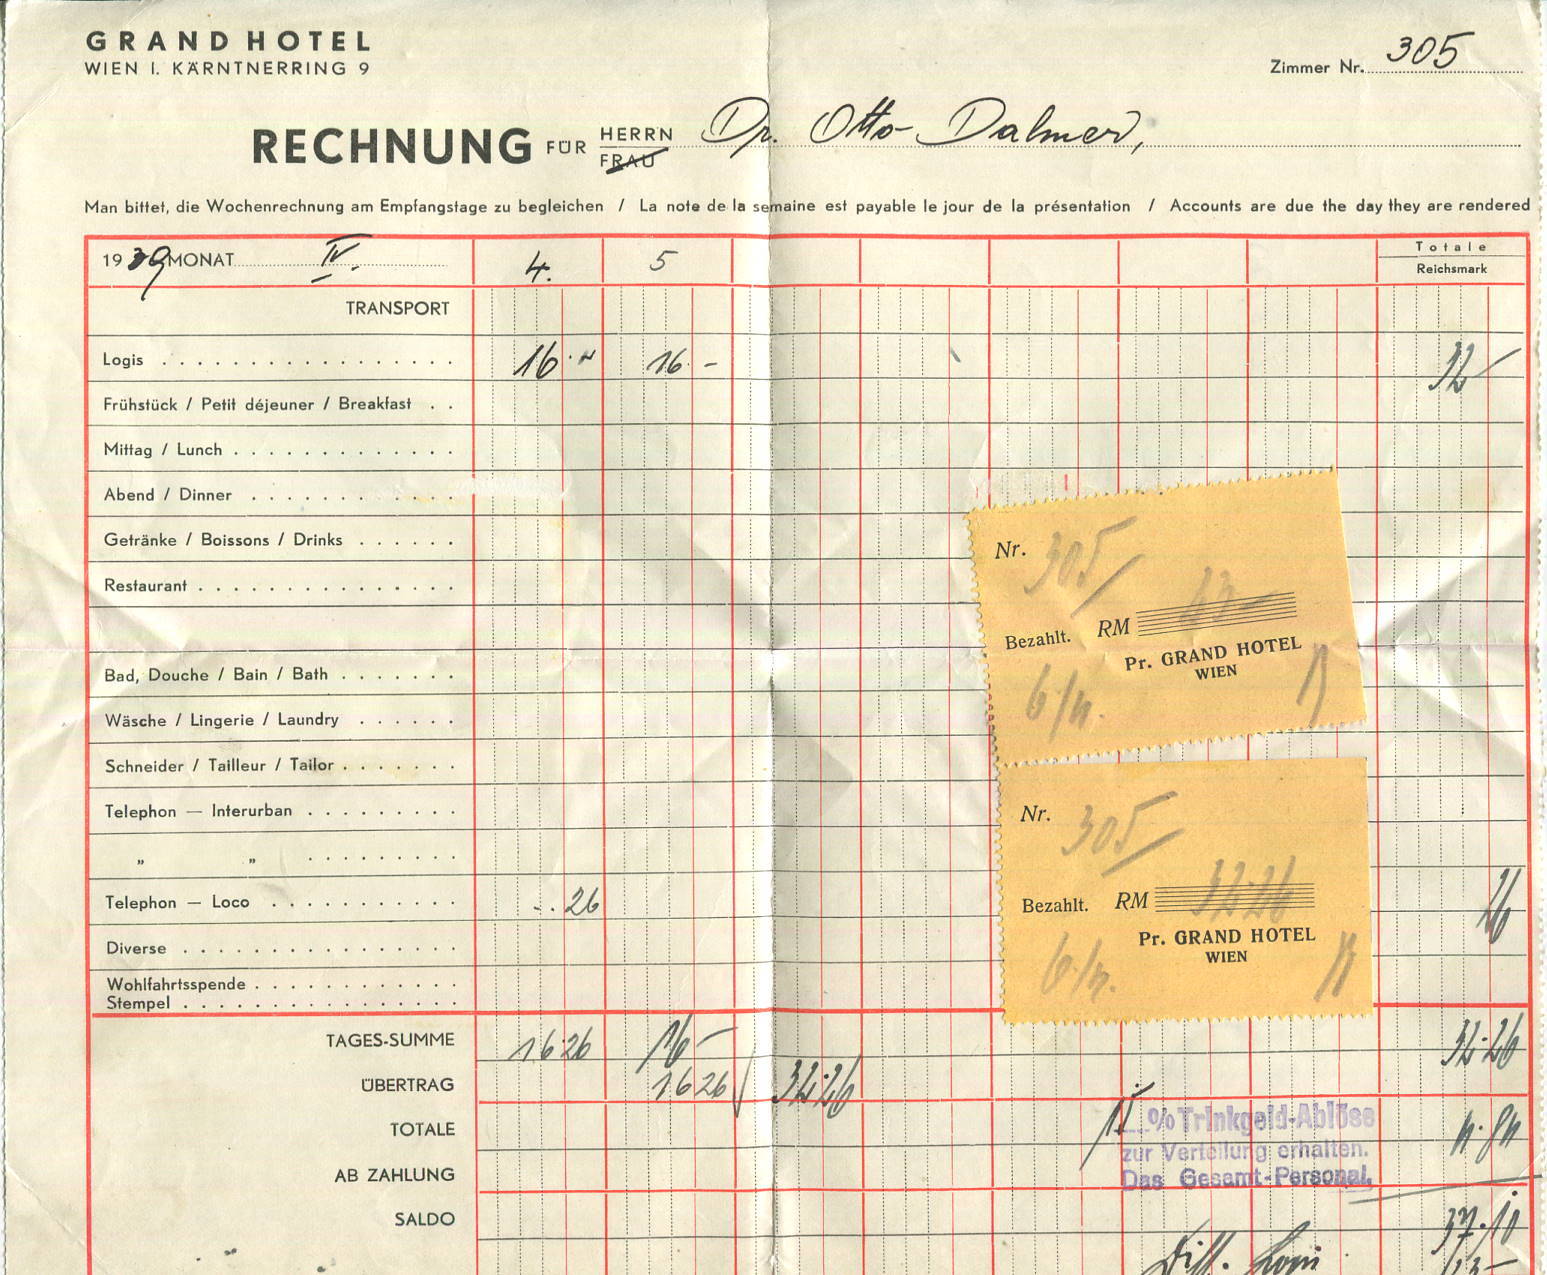 GRAND HOTEL
WIEN I. KÄRNTNERRING 9
Zimmer Nr. 305
RECHNUNG FÜR HERRN FRAU Dr. Otto Dalmer,
Man bittet, die Wochenrechnung am Empfangstage zu begleichen / La note de la semaine est payable le jour de la présentation / Accounts are due the day they are rendered
1939 MONAT IV. 4. 5 Totale
Reichsmark
TRANSPORT
Logis . . . . . . . . . . . . . . . . . 16 16.- 32
Frühstück / Petit déjeuner / Breakfast . .
Mittag / Lunch . . . . . . . . . . . . .
Abend / Dinner . . . . . . . . . . . .
Getränke / Boissons / Drinks . . . . . .
Restaurant . . . . . . . . . . . . . . .
Bad, Douche / Bain / Bath . . . . . . .
Wäsche / Lingerie / Laundry . . . . . .
Schneider / Tailleur / Tailor . . . . . . .
Telephon — Interurban . . . . . . . . .
„ „ . . . . . . . . .
Telephon — Loco . . . . . . . . . . . -.26 26
Diverse . . . . . . . . . . . . . . . .
Wohlfahrtsspende . . . . . . . . . . . .
Stempel . . . . . . . . . . . . . . . .
TAGES-SUMME 16 26 16 - 32.26
ÜBERTRAG 16 26 32.26
TOTALE 4.84
AB ZAHLUNG
SALDO 37.10
Nr. 305/
Bezahlt. RM
Pr. GRAND HOTEL
WIEN
Nr. 305/
Bezahlt. RM 32.26
Pr. GRAND HOTEL
WIEN
15 % Trinkgeld-Ablöse
zur Verteilung erhalten.
Das Gesamt-Personal.
Diff. Logis